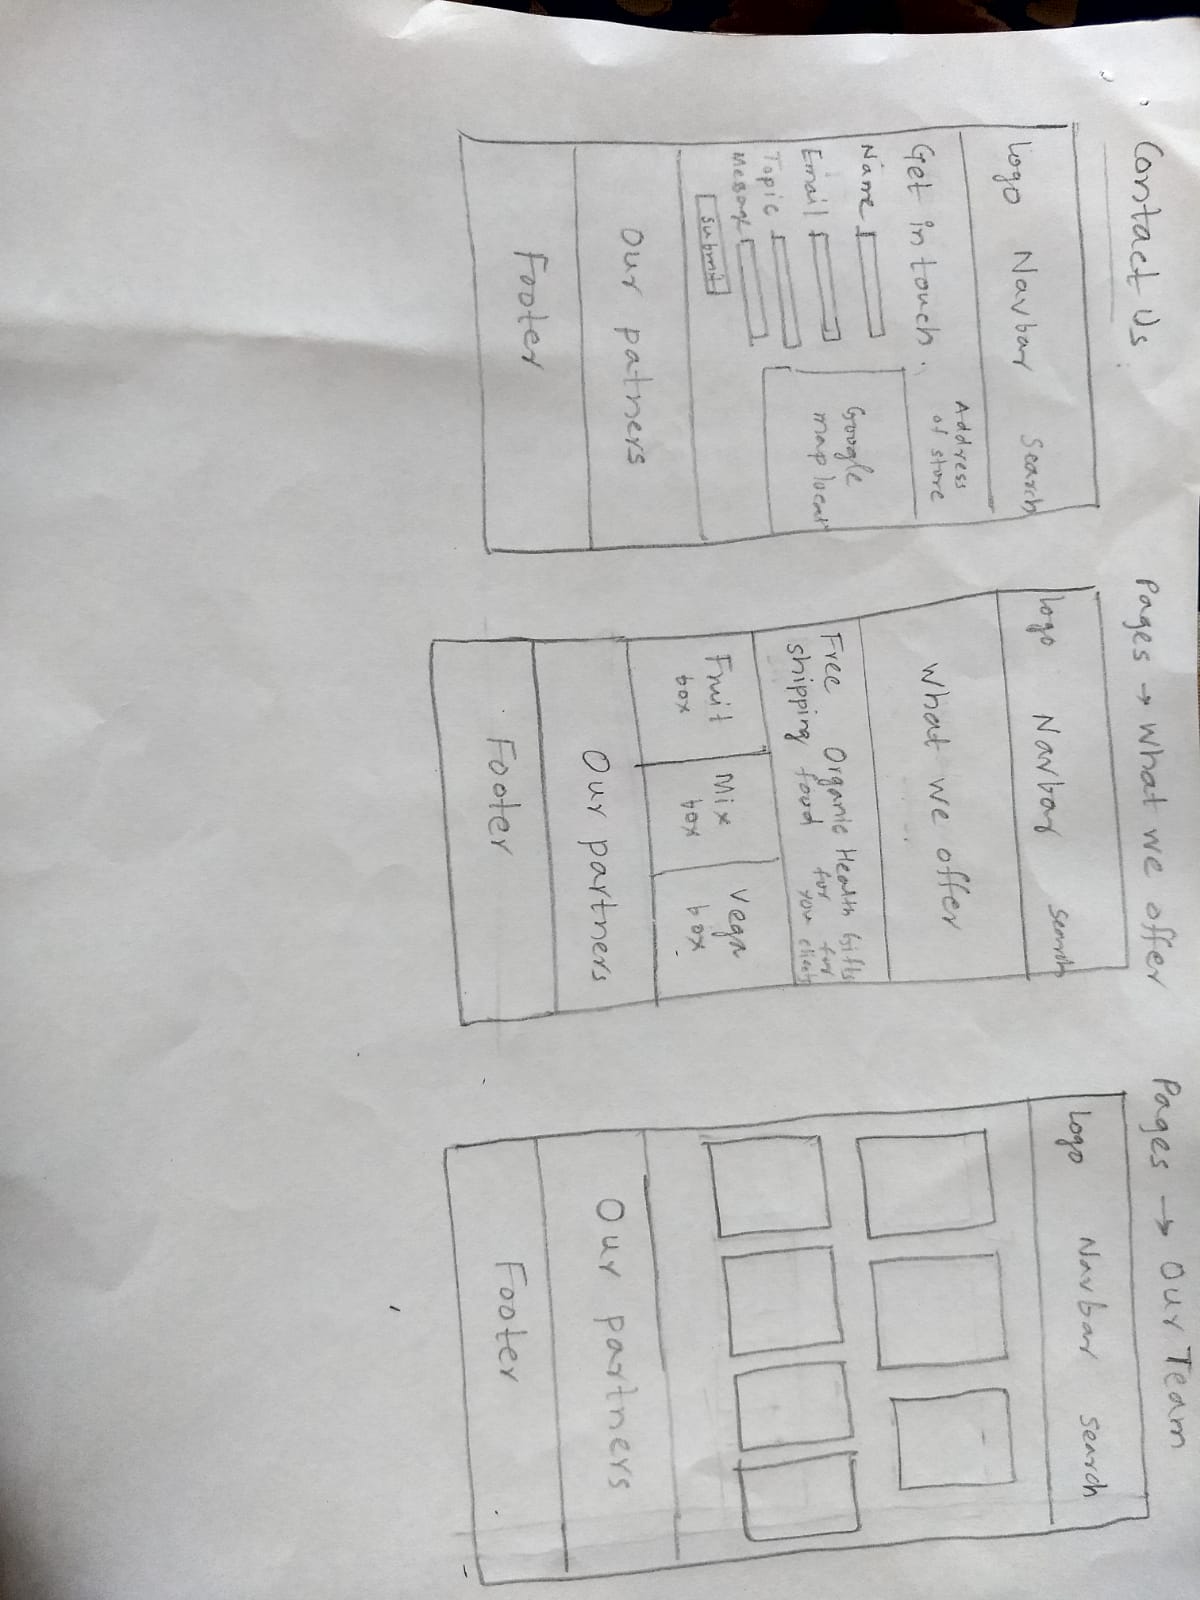 Contact Us
Logo Navbar Search
Address
of store
Get in touch
Name
Email
Topic
Message
Submit
Google
map locat
Our patners
Footer
Pages → What we offer
Logo Navbar Search
What we offer
Free
shipping
Organic
food
Health
for
you
Gifts
for
clients
Fruit
box
Mix
box
Vega
box
Our partners
Footer
Pages → Our Team
Logo Navbar Search
Our partners
Footer